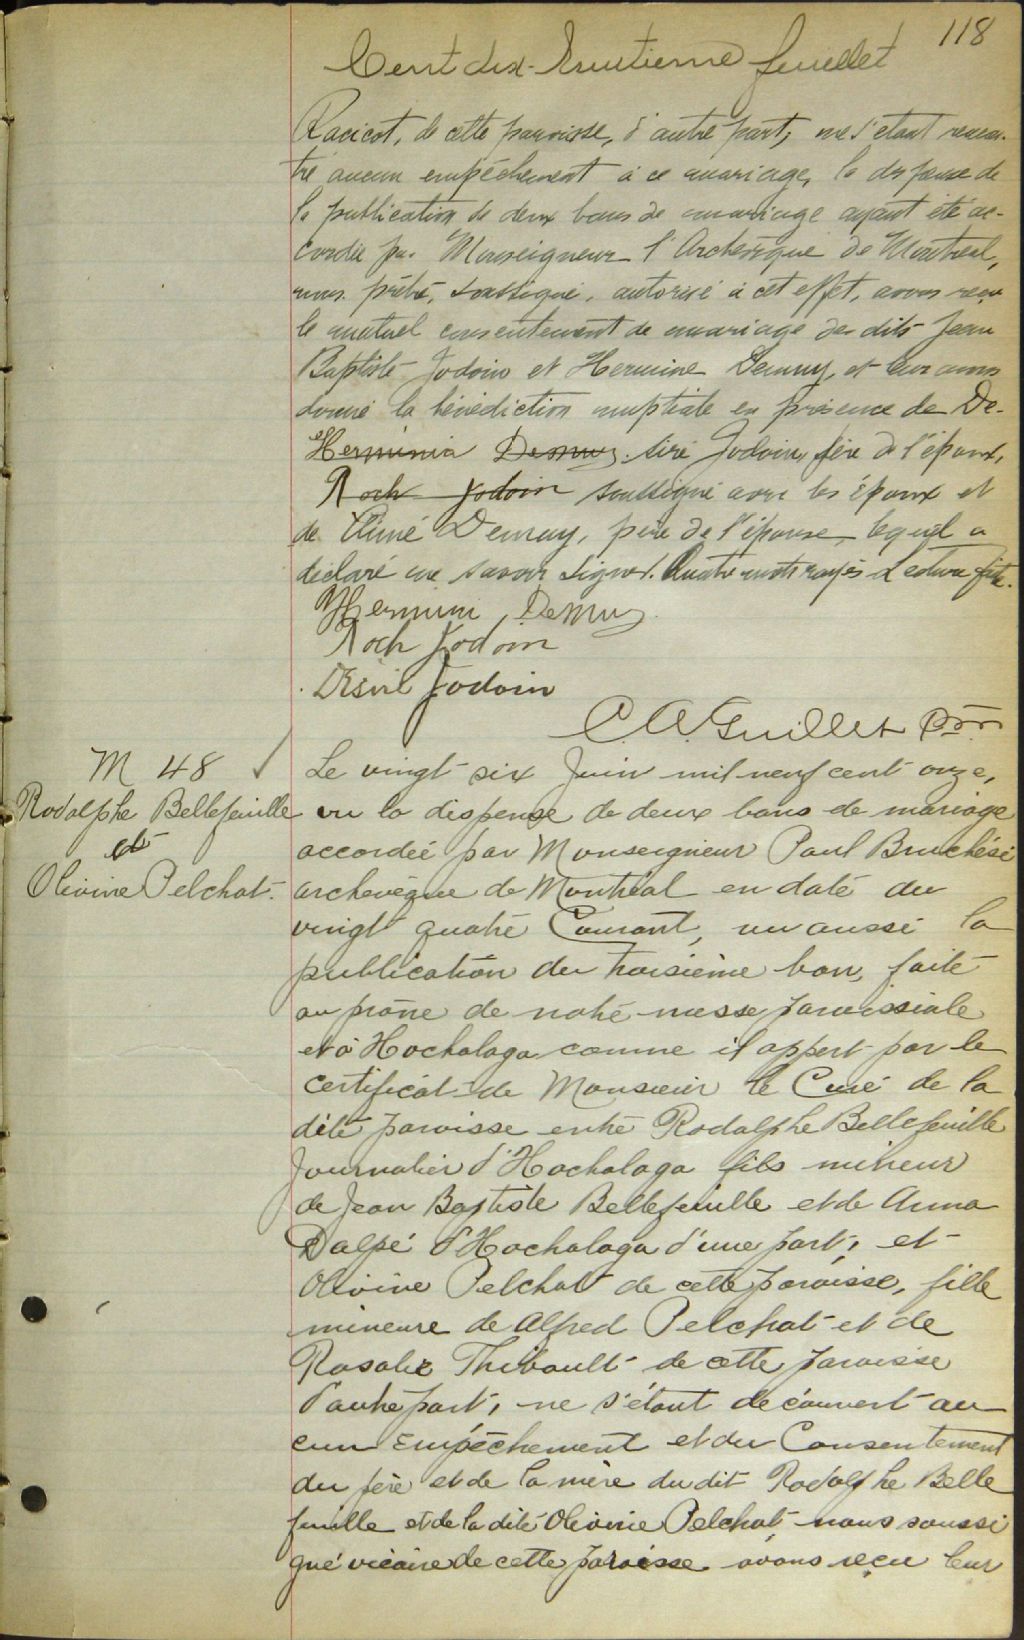 118
Cent dix-huitieme feuillet
Racicot, de cette paroisse, d'autre part, ne s'etant rencon-
tré aucun empéchement à ce mariage, la dispense de
la publication de deux bans de mariage ayant été ac-
cordée par Monseigneur l'Archevêque de Montreal,
nous prêtre, soussigné, autorisé à cet effet, avons reçu
le mutuel consentement de mariage des dits Jean
Baptiste Jodoin et Hermine Demuy, et leur avons
donné la bénédiction nuptiale en présence de De-
Herminia Demuy siré Jodoin, père de l'époux,
Roch Jodoin soussigné avec les époux et
de Aimé Demuy, père de l'épouse, lequel a
déclaré ne savoir signer. Quatre mots rayés Lecture faite.
Hermini Demuy
Roch Jodoin
Désiré Jodoin
C. A. Guillet Ptre
M 48
Rodolphe Bellefeuille
et
Olivine Pelchat.
Le vingt six Juin mil neuf cent onze,
vu la dispense de deux bans de mariage
accordée par Monseigneur Paul Bruchési
archevêque de Montréal en date du
vingt quatre Courant, vu aussi la
publication du troisième ban, faite
au prône de notre messe paroissiale
et à Hochalaga comme il appert par le
certificat de Monsieur le Curé de la
dite paroisse entre Rodolphe Bellefeuille
Journalier d'Hochalaga fils mineur
de Jean Baptiste Bellefeuille et de Anna
Dalpé d'Hochalaga d'une part, et
Olivine Pelchat de cette paroisse, fille
mineure de Alfred Pelchat et de
Rosalie Thibault de cette paroisse
d'autre part, ne s'étant découvert au
cun Empêchement et du Consentement
du père et de la mère du dit Rodolphe Belle
feuille et de la dite Olivine Pelchat nous soussi
gné vicaire de cette paroisse avons reçu leur